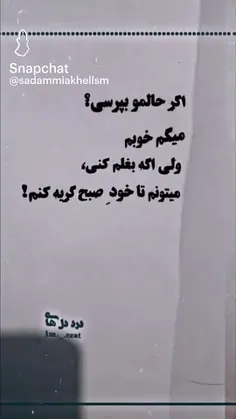 Snapchat
@sadammiakhellsm
اگر حالمو بپرسی؟
میگم خوبم
ولی اگه بغلم کنی،
میتونم تا خودِ صبح گریه کنم!
درد دل های
im._.zzat